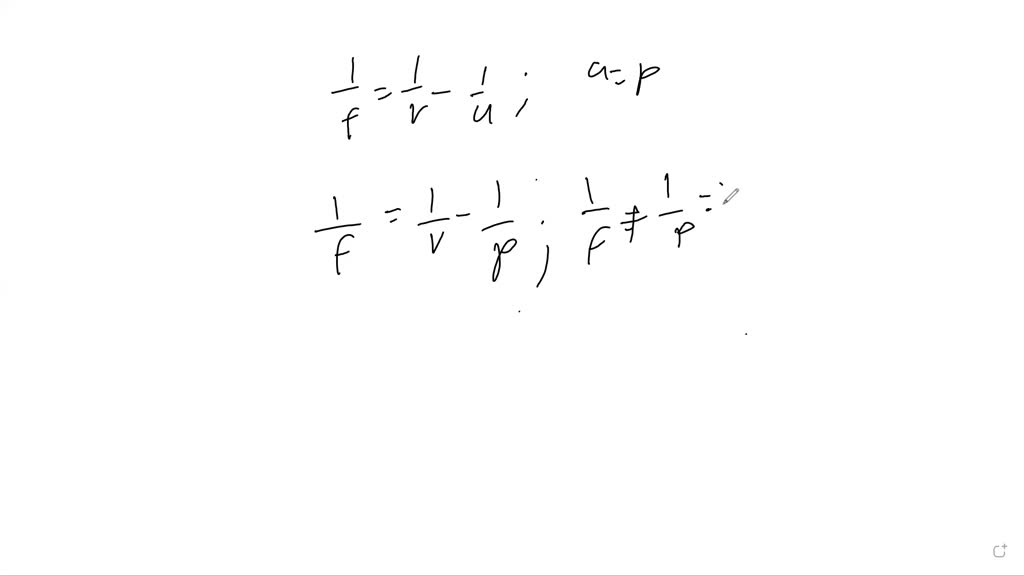 1/f = 1/v - 1/u ; u = p
1/f = 1/v - 1/p ; 1/f + 1/p =